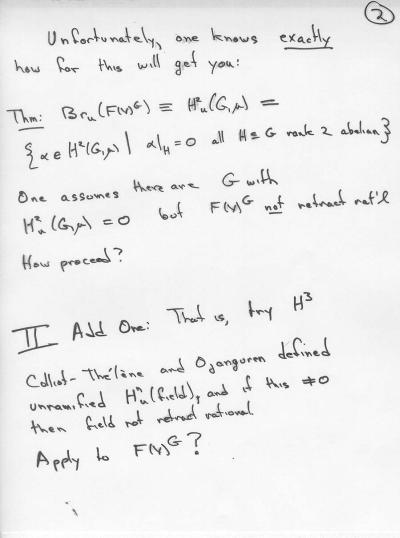 2
Unfortunately, one knows exactly
how far this will get you:
Thm: Br_u(F(V)^G) ≡ H²_u(G,μ) =
{α ∈ H²(G,μ) | α|_H = 0 all H ⊆ G rank 2 abelian}
One assumes there are G with
H²_u(G,μ) = 0 but F(V)^G not retract rat'l
How proceed?
II Add One: That is, try H³
Colliot-Thélène and Ojanguren defined
unramified Hⁿ_u(field), and if this ≠0
then field not retract rational.
Apply to F(V)^G?